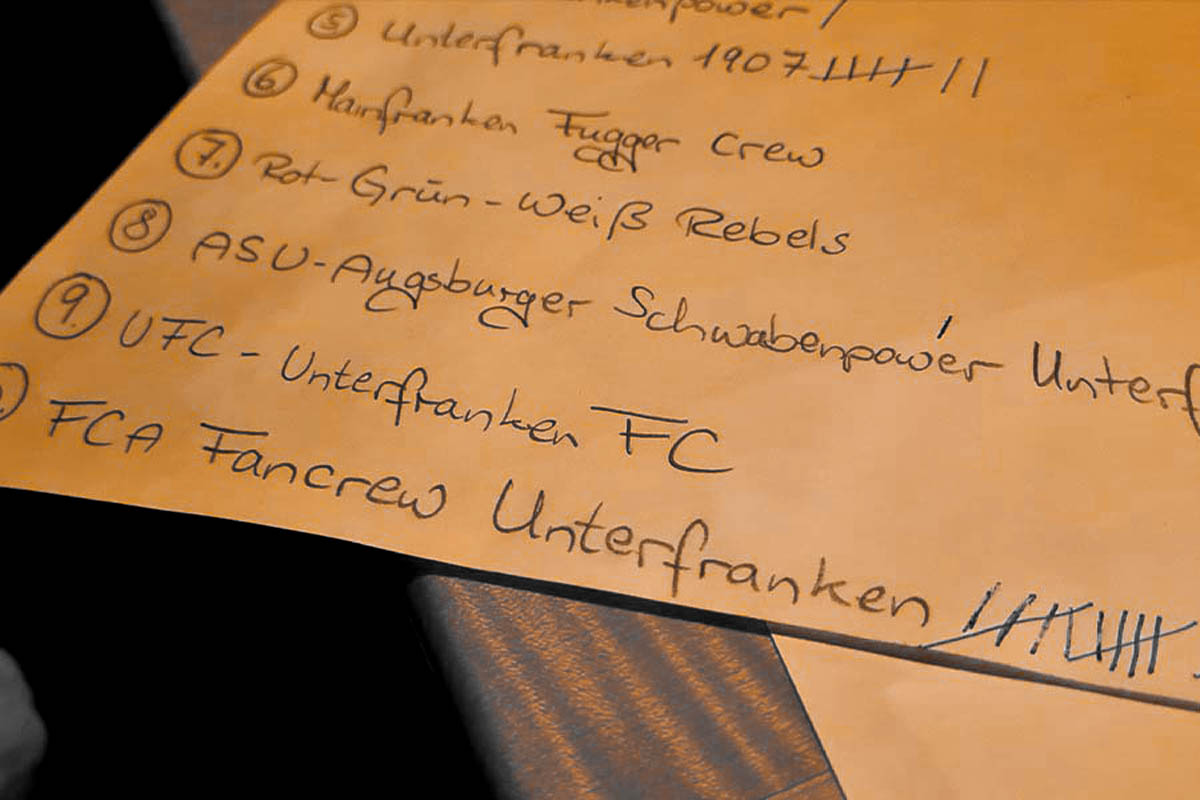 ⑤ Unterfranken 1907
⑥ Mainfranken Fugger Crew
⑦. Rot-Grün-Weiß Rebels
⑧ ASU-Augsburger Schwabenpower Unterf
⑨. UFC - Unterfranken FC
FCA Fancrew Unterfranken